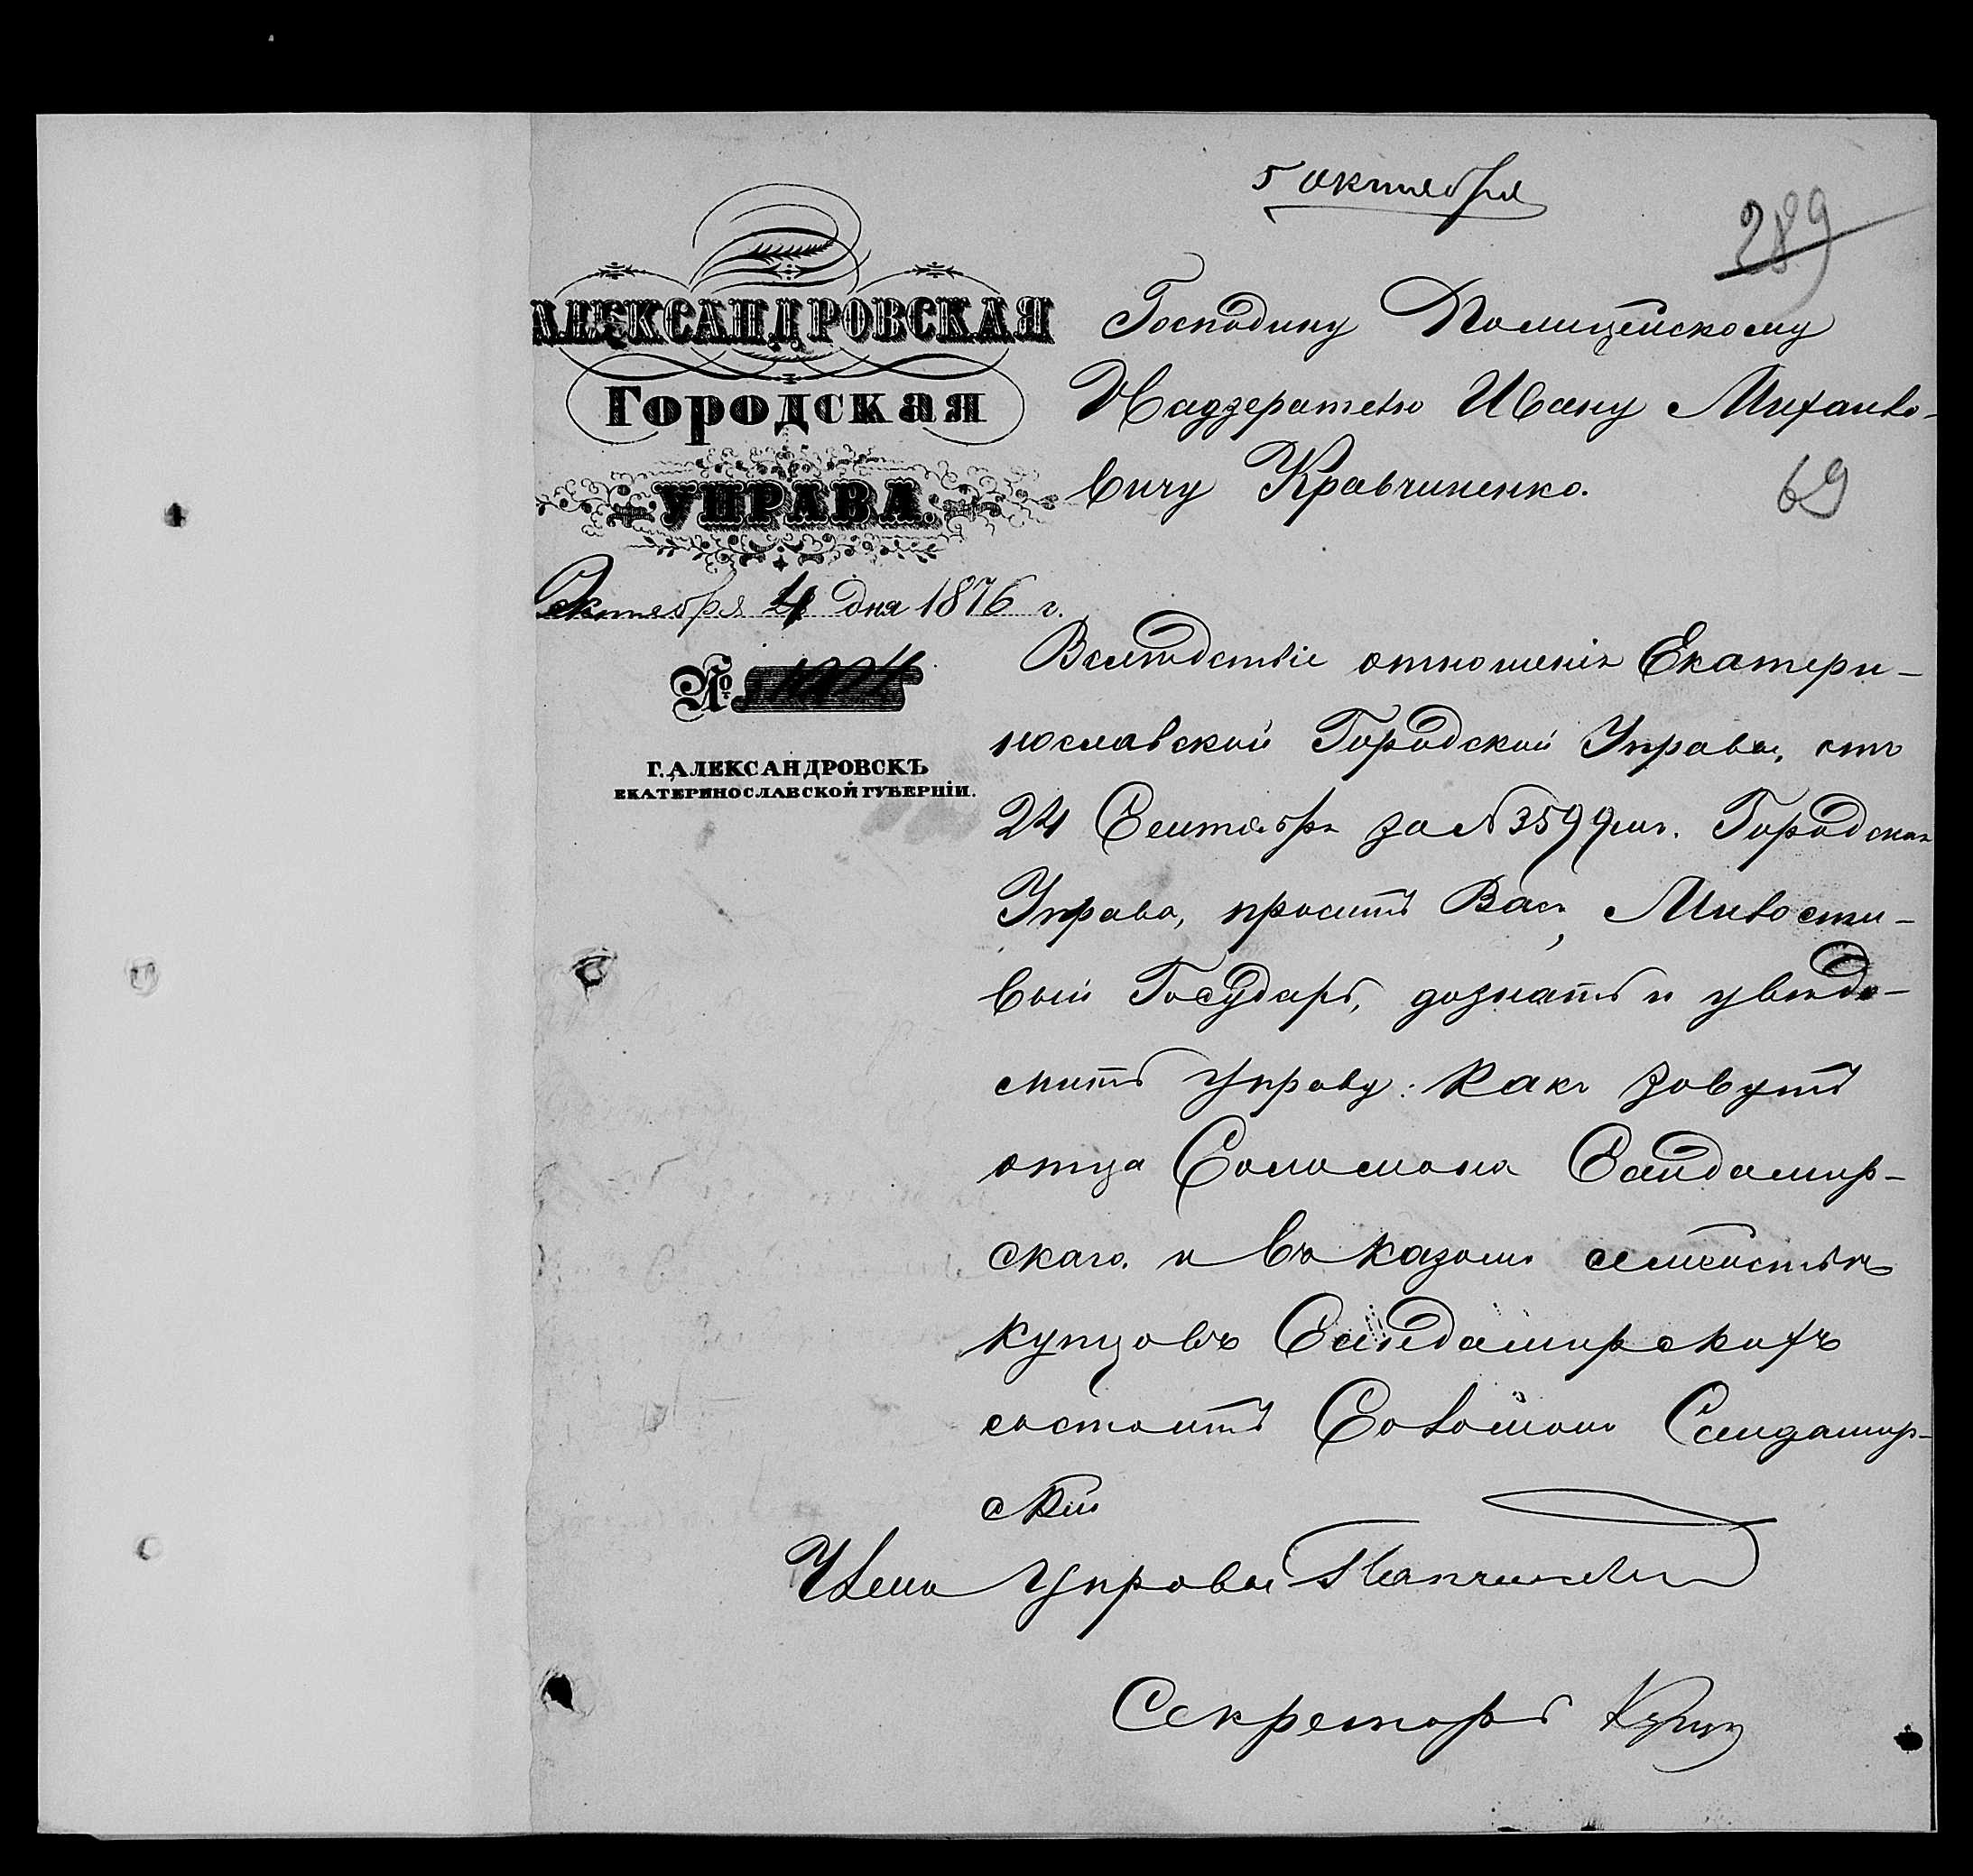 5 октября
289
АЛЕКСАНДРОВСКАЯ
Городская
УПРАВА.
Октября 4 дня 1876 г.
№
Г. АЛЕКСАНДРОВСКЪ
ЕКАТЕРИНОСЛАВСКОЙ ГУБЕРНІИ.
Господину Полицейскому
Надзерателю Ивану Михайло-
вичу Кравчиненко.
69
Вслѣдствіе отношенія Екатери-
нославской Городской Управы, отъ
24 Сентября за № 3599мъ. Городская
Управа, проситъ Васъ, Милости-
вый Государь, дознать и увѣдо-
мить управу: какъ зовутъ
отца Соломона Сандомир-
скаго. и въ какомъ семействѣ
купцовъ Сандомирскихъ
состоитъ Соломонъ Сандомир-
скій
Членъ Управы
Секретарь